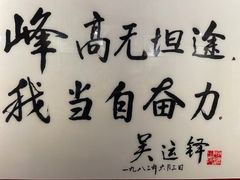 峰高无坦途，
我当自奋力。
吴运铎
一九八二年六月二日